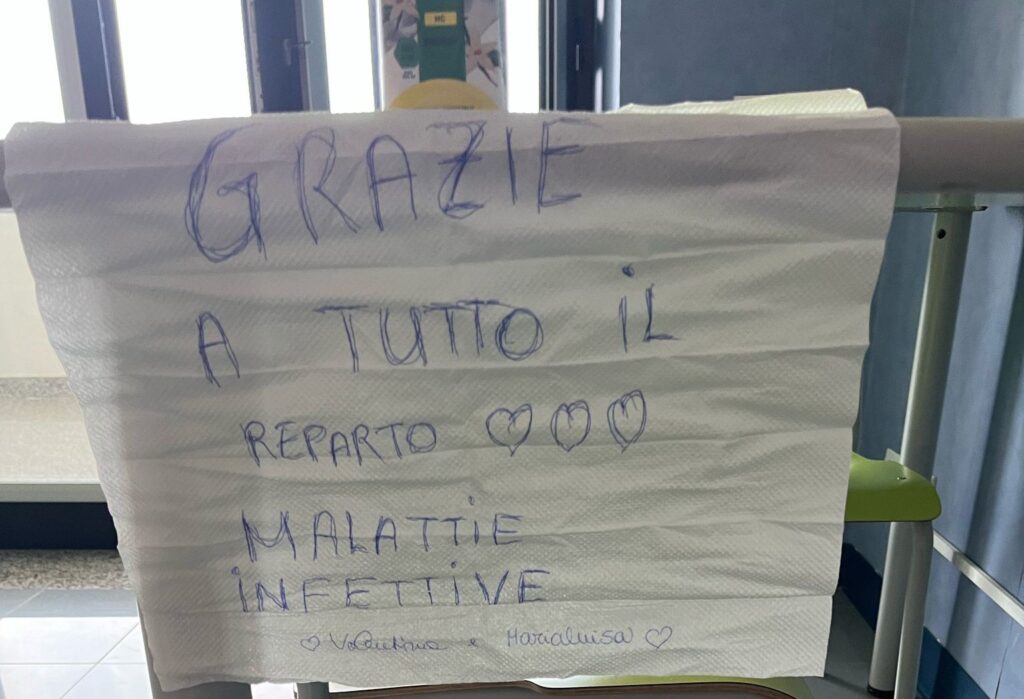 MG
GRAZIE
A TUTTO iL
REPARTO ♡♡♡
MALATTiE
iNFETTiVE
♡ Valentina e Marialuisa ♡